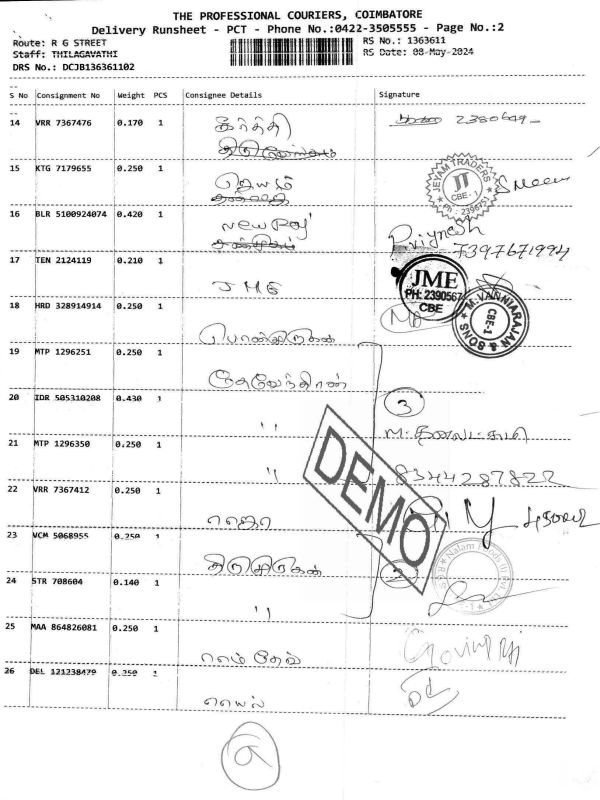 THE PROFESSIONAL COURIERS, COIMBATORE
Delivery Runsheet - PCT - Phone No.:0422-3505555 - Page No.:2
Route: R G STREET
Staff: THILAGAVATHI
DRS No.: DCJB136361102
RS No.: 1363611
RS Date: 08-May-2024
S No Consignment No Weight PCS Consignee Details Signature
14 VRR 7367476 0.170 1 கீர்த்தி
15 KTG 7179655 0.250 1 ஜெயம்
JEYAM TRADERS
JT
CBE - 1
Ph : 2396751
16 BLR 5100924074 0.420 1 New Roj
7397671994
17 TEN 2124119 0.210 1 JME
JME
PH: 2390567
CBE
18 HRD 328914914 0.250 1 பொன்முருகன்
M.VANNIARAJAN & SONS
CBE-1
19 MTP 1296251 0.250 1 தேவேந்திரன்
20 IDR 505310208 0.430 1 "
3
21 MTP 1296350 0.250 1 "
8344287822
DEMO
22 VRR 7367412 0.250 1
23 VCM 5068955 0.250 1 திருமுருகன்
2
24 STR 708604 0.140 1 "
25 MAA 864826081 0.250 1 ராம்தேவ்
Govindraj
26 DEL 121238479 0.250 1